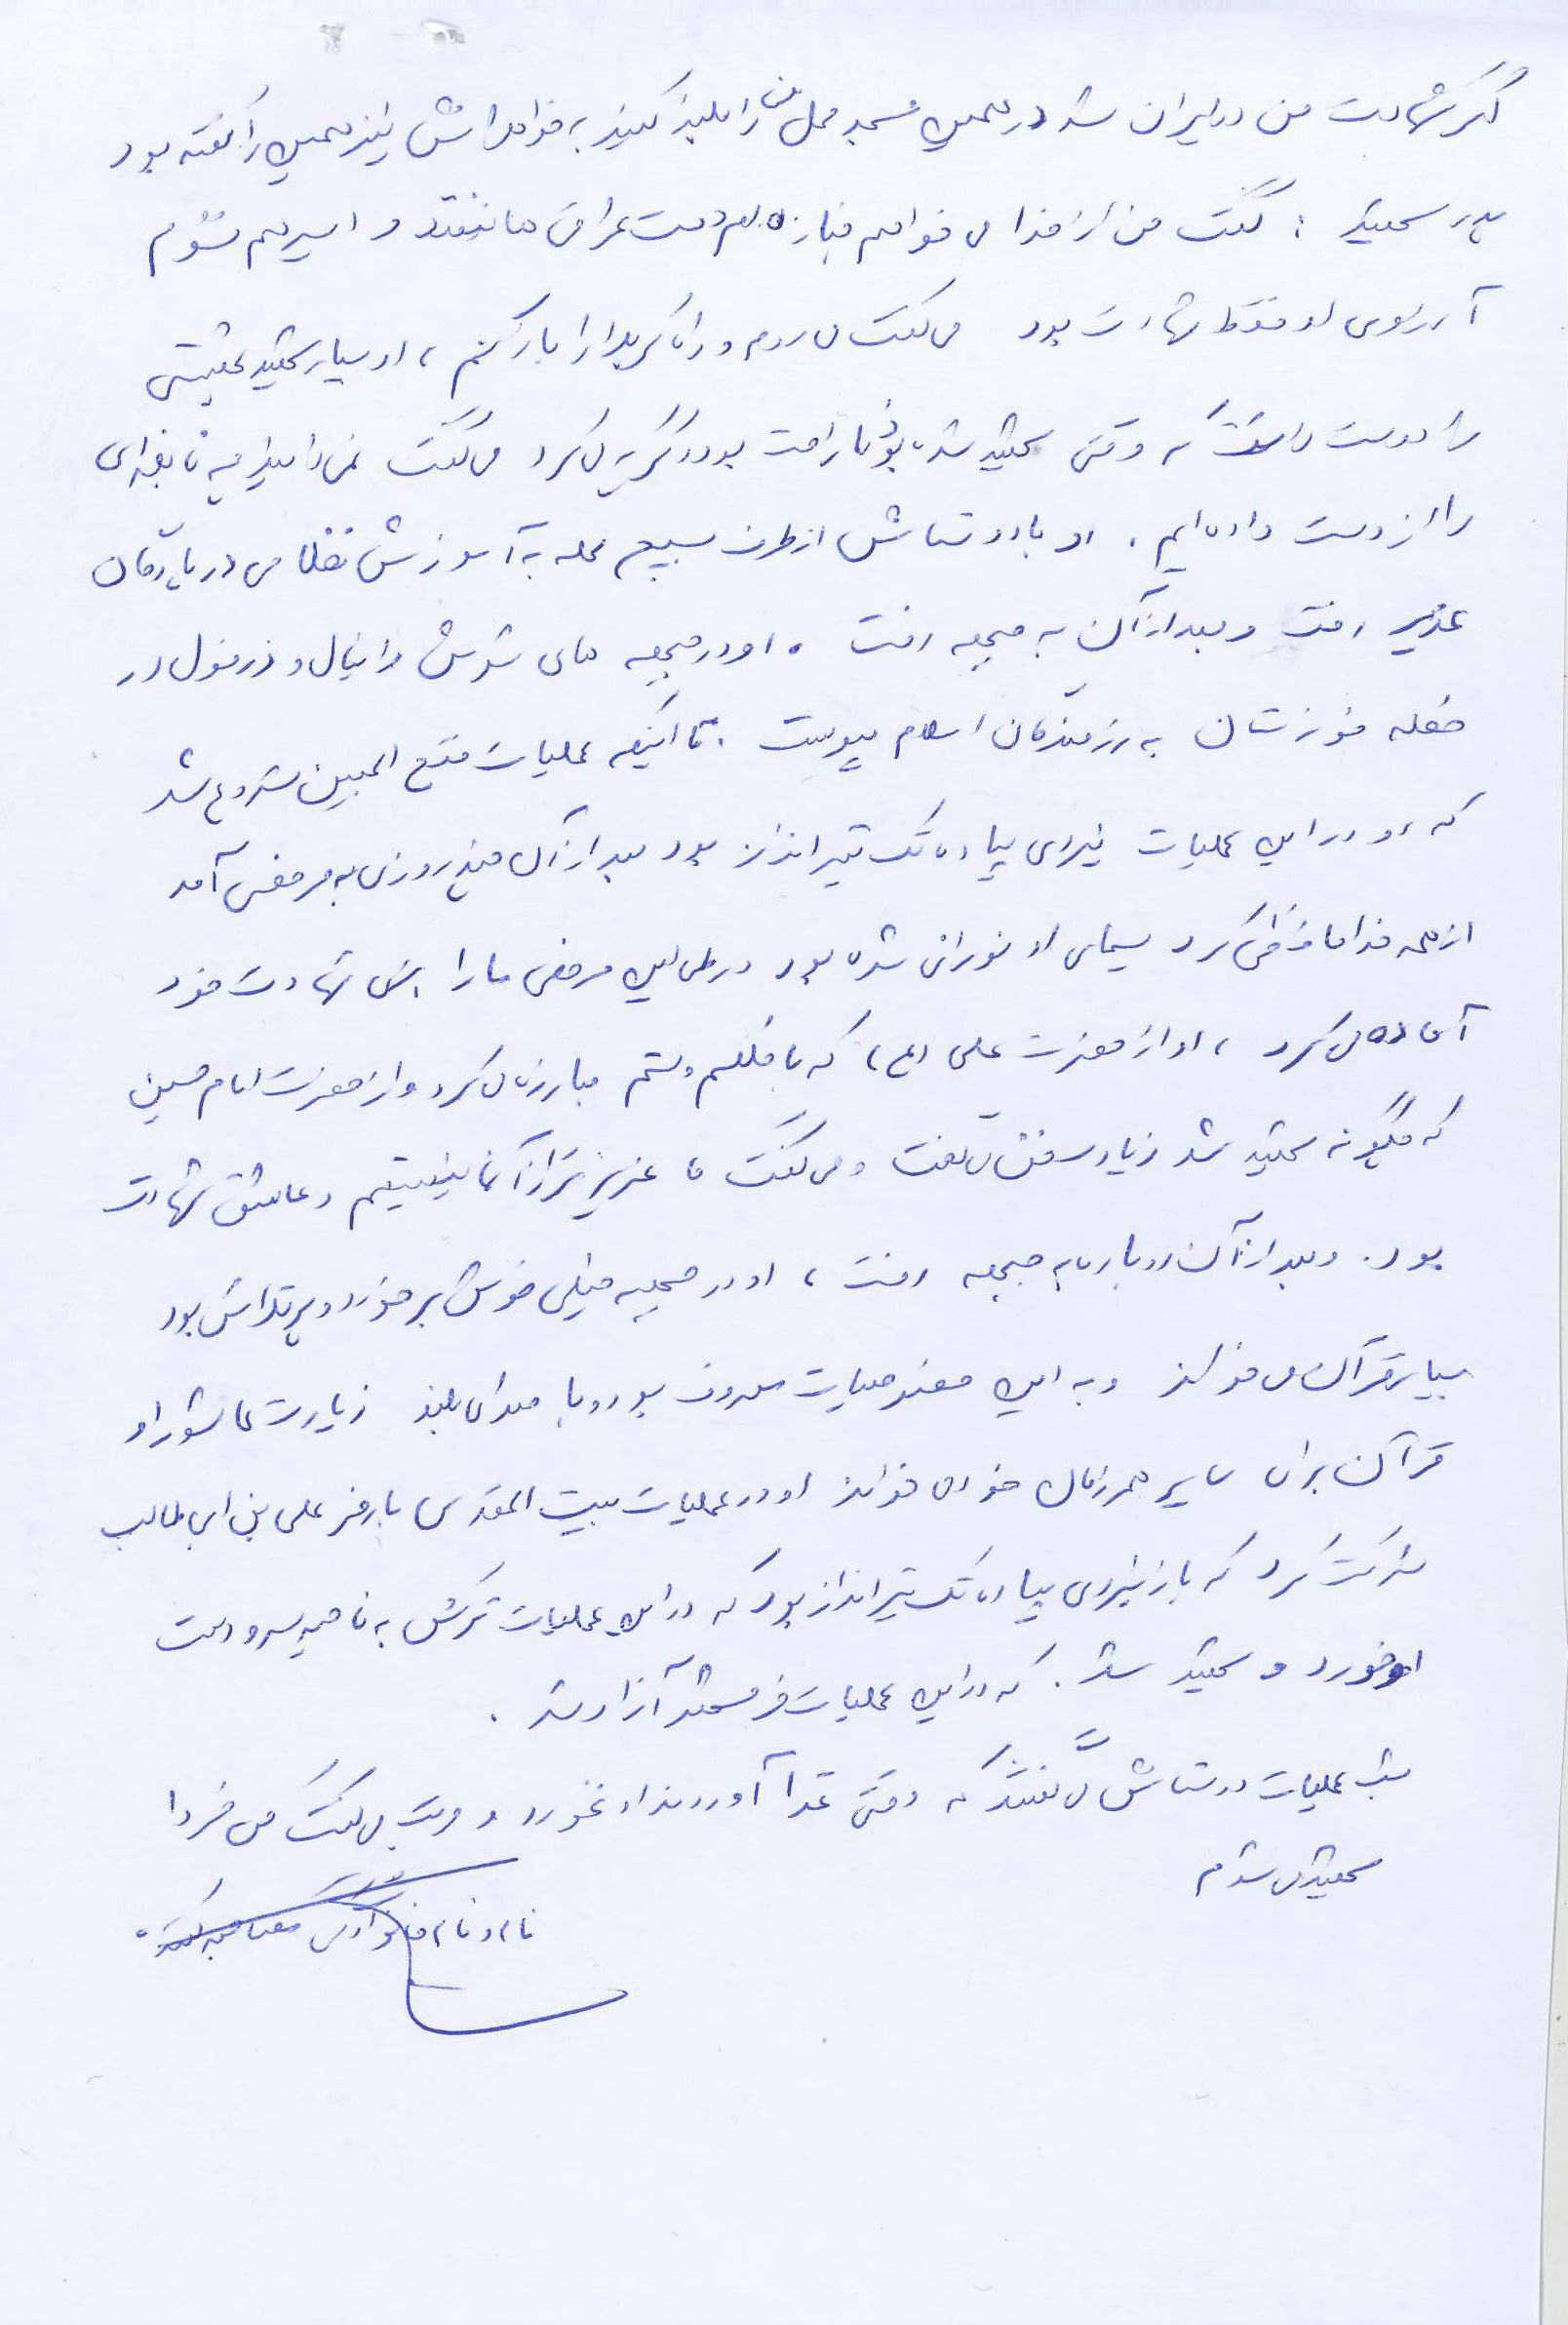 اگر شهادت من در ایران شد در همین مسجد محل من را بلند کنید به خواهرانش نیز همین را گفته بود
پدر شهید : گفت من از خدا می خواهم جنازه ام دست عراقی ها نیفتد و اسیر هم نشوم
آرزوی او فقط شهادت بود می گفت می روم و راه کربلا را باز کنم ، او بسیار شهید بهشتی
را دوست داشت که وقتی شهید شد، بود ناراحت بود و گریه می کرد می گفت نمی دانید چه نابغه ای
را از دست داده ایم . او با دوستانش از طرف بسیج محله به آموزش نظامی در پادگان
غدیر رفت و بعد از آن به جبهه رفت . او در جبهه های شوش دانیال و دزفول در
خطه خوزستان به رزمندگان اسلام پیوست . تا اینکه عملیات فتح المبین شروع شد
که او در این عملیات نیروی پیاده تک تیرانداز بود بعد از آن چند روزی به مرخصی آمد
از همه خداحافظی کرد سیمای او نورانی شده بود در طی این مرخصی ما را برای شهادت خود
آماده می کرد ، او از حضرت علی (ع) که با ظلم و ستم مبارزه می کرد و از حضرت امام حسین
که چگونه شهید شد زیاد سخن می گفت و می گفت ما عزیزتر از آنها نیستیم و عاشق شهادت
بود . و بعد از آن دوباره به جبهه رفت ، او در جبهه خیلی خوش برخورد و پرتلاش بود
بسیار قرآن می خواند و به این خصوصیات معروف بود و با صدای بلند زیارت عاشورا و
قرآن برای سایر همرزمان خود می خواند او در عملیات بیت المقدس با رمز علی بن ابی طالب
شرکت کرد که باز نیروی پیاده تک تیرانداز بود که در این عملیات ترکش به ناحیه سر و دست
او خورد و شهید شد . که در این عملیات خرمشهر آزاد شد .
شب عملیات دوستانش می گفتند که وقتی غذا آوردند او نخورد و می گفت من فردا
شهید می شوم
نام و نام خانوادگی